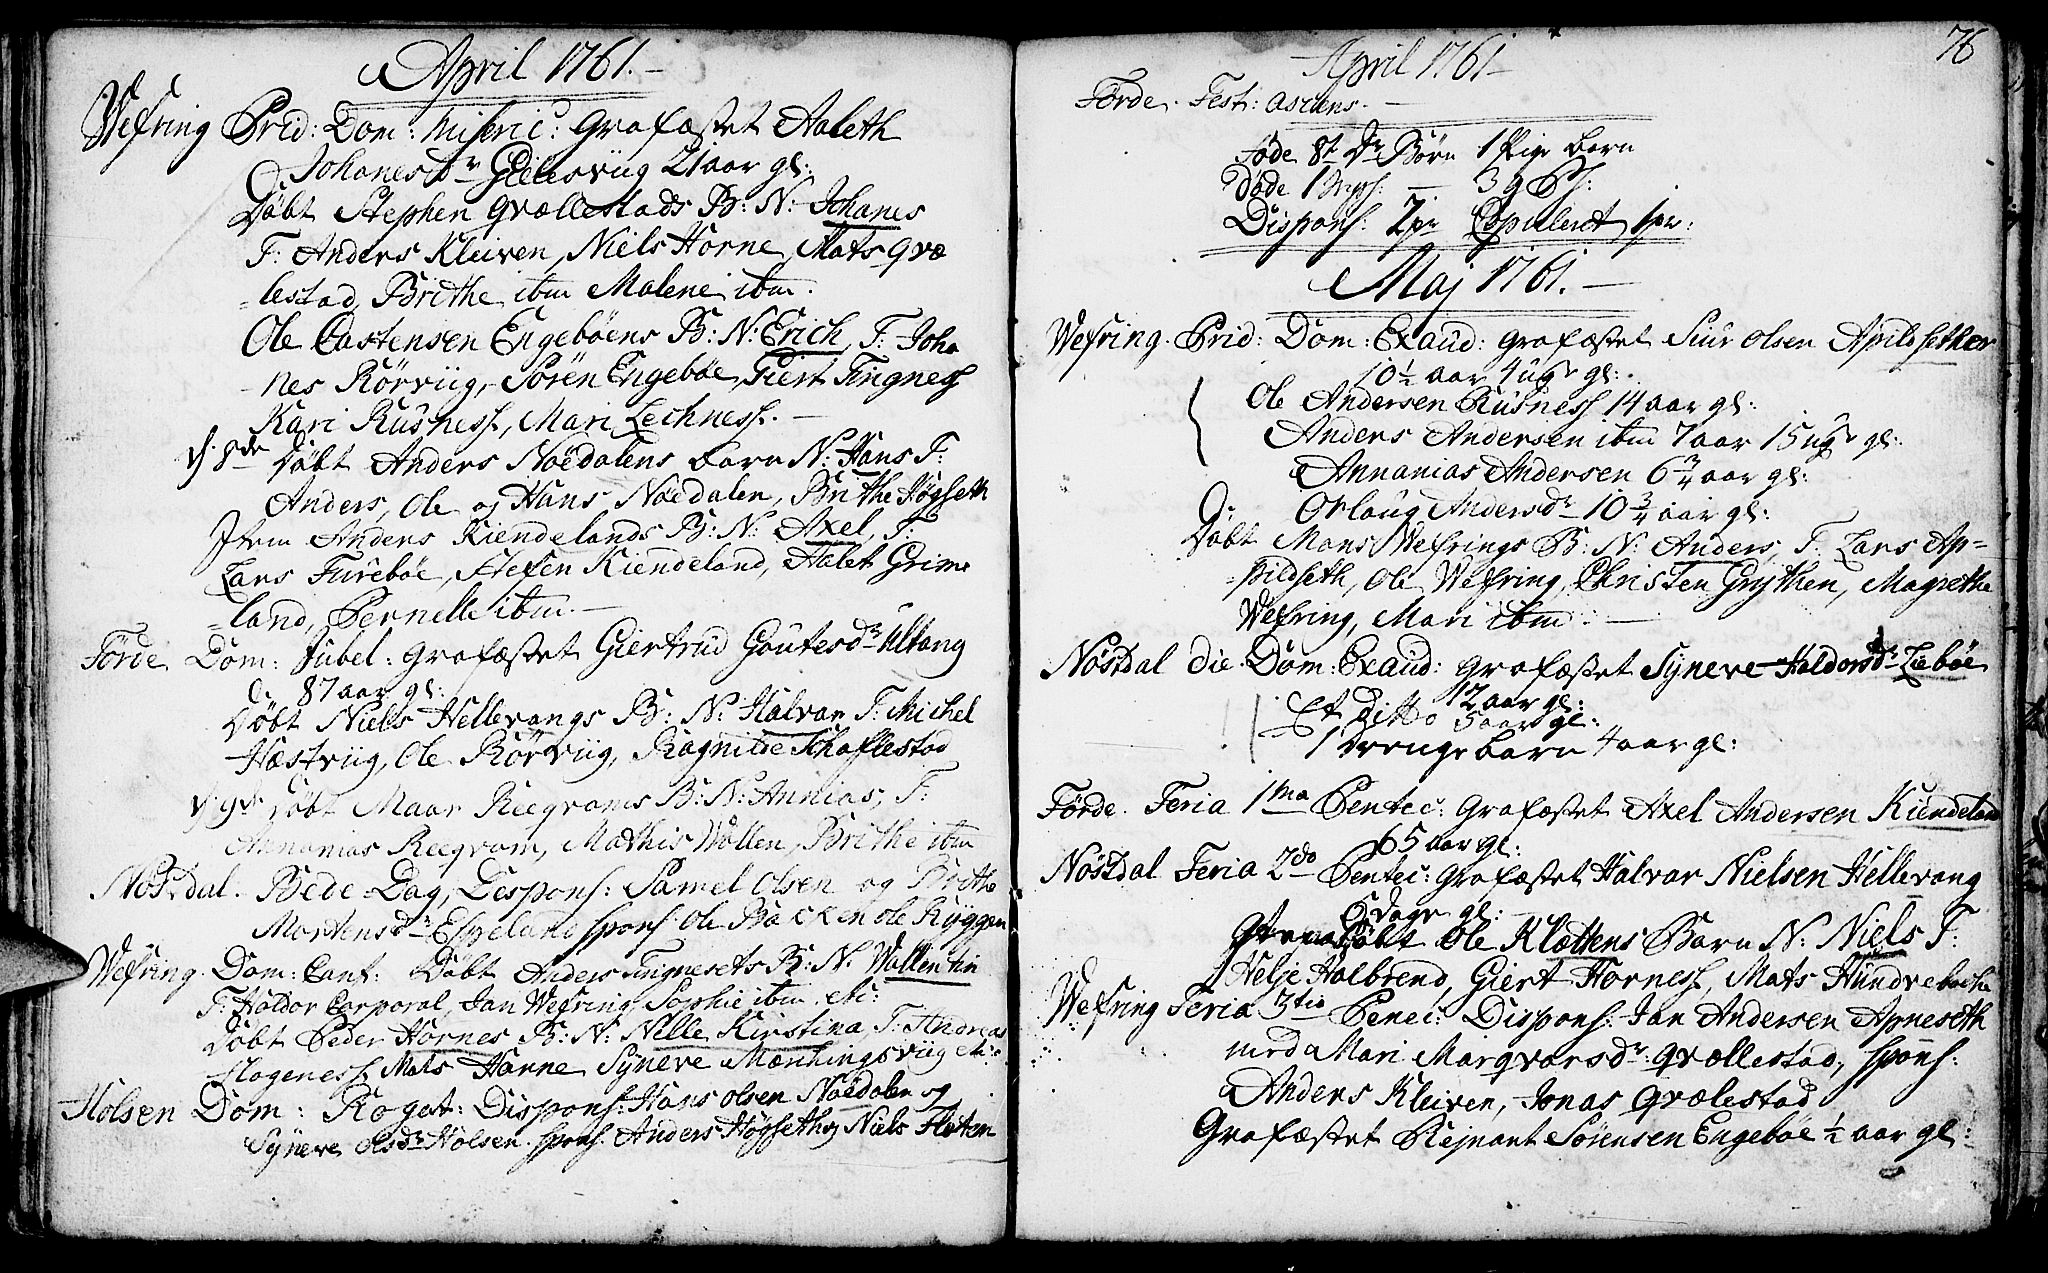 April 1761.
Wefring Prid: Dom: Miseric: Grafæstet Aaleth
Johanesdr Gielesviig 21 aar gl:
Døbt Stephen Qvællestads B: N: Johanes
F: Anders Kleiven, Niels Horne, Mats Qvæ
lestad, Brithe ibm Malene ibm.
Ole Castensen Engebøens B: N: Erich, F: Joha
nes Rörviig, Sören Engebøe, Giert Tingness
Kari Rusness, Mari Lechness.
d. 8de Døbt Anders Nøedalens barn N: Hans F:
Anders, Ole og Hans Nøedalen, Brithe Høgseth
Item Anders Kiendelands B: N: Axel, F:
Lars Furebøe, Stefen Kiendeland, Aalet Grime
land, Pernelle ibm.
Förde Dom: Jubel: Grafæstet Giertrud Goutesdr Ultang
87 aar gl:
Døbt Niels Hellevangs B: N: Halvar F: Michel
Hæstviig, Ole Rörviig, Ragnilde Schaflestad
d. 9de Døbt Maar Reeqvams B: N: Annias, F:
Annanias Reeqvam, Mathis Wollen, Brithe ibm
Nösdal. Bede Dag, Dispons: Samel Olsen og Brithe
Mortensdr Espeland spons: Ole Backen Ole Ryggen
Wefring. Dom: Cant: Døbt Anders Tingnesets B: N: Wallentin
F: Haldor Corporal, Jan Wefring, Sophie ibm etc:
Døbt Peder Hornes B: N: Nille Kirstina, F: Andreas
Hogeness, Mats Hanne Syneve Mænningsviig etc:
Holsen Dom: Rogat: Dispons: Hans Olsen Nøedalen og
Syneve Olsdr Holsen. spons: Anders Høgseth og Niels Floten
76
April 1761
Förde. Fest: Ascens.
Föde 8t Dr Børn 1 Pige barn
Døde 1 3
Dispons: 7 pr Copuleret 1 par:
Maj 1761.
Wefring. Prid: Dom: Exaud: Grafæstet Siur Olsen Apildsether
10 1/2 aar 4 ugr gl:
Ole Andersen Rusness 14 aar gl:
Anders Andersen ibm 7 aar 15 ugr gl:
Annanias Andersen 6 3/4 aar gl:
Orlaug Andersdr 10 3/4 aar gl:
Døbt Mons Wefrings B: N: Anders, F: Lars Ap-
pildseth, Ole Wefring, Christen Grythen, Magrethe
Wefring, Mari ibm.
Nösdal Die Dom: Exaud: Grafæstet Syneve Haldorsdr Liebøe
12 aar gl:
Et Ditto 5 aar gl:
1 Drenge barn 4 aar gl:
Förde. Feria 1ma Pentec: Grafæstet Axel Andersen Kiendeland
65 aar gl:
Nösdal Feria 2do Pentec: Grafæstet Halvar Nielsen Hellevang
6 dage gl:
Døbt Ole Klættens Barn N: Niels F:
Helje Halbrend, Giert Horness, Mats Hundvebacke
Wefring Feria 3tia Penec: Dispons: Jan Andersen Apneseth
med Mari Marqvorsdr Qvællestad, spons:
Anders Kleiven, Jonas Qvælestad
Grafæstet Rejnant Sørensen Engebøe 1/2 aar gl: